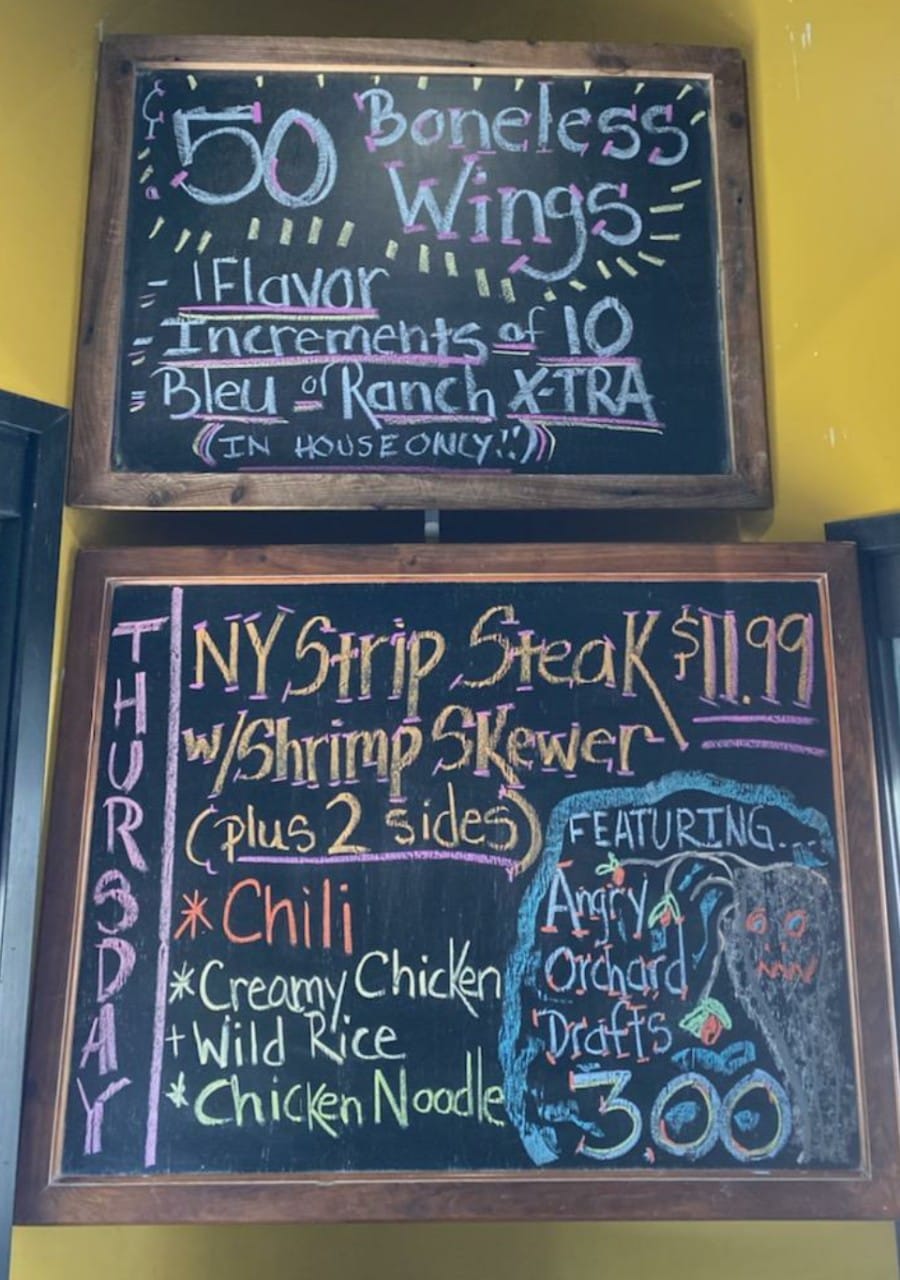 50 Boneless
Wings
1 Flavor
Increments of 10
Bleu or Ranch X-TRA
(IN HOUSE ONLY!!)
THURSDAY
NY Strip Steak $11.99
w/Shrimp Skewer
(plus 2 sides)
*Chili
*Creamy Chicken
+Wild Rice
*Chicken Noodle
FEATURING...
Angry
Orchard
Drafts
3.00